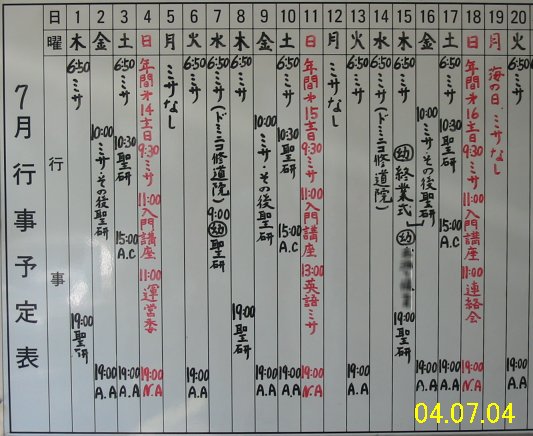 7月行事予定表
日 1 2 3 4 5 6 7 8 9 10 11 12 13 14 15 16 17 18 19 20
曜 木 金 土 日 月 火 水 木 金 土 日 月 火 水 木 金 土 日 月 火
行事
6:50 ミサ 19:00 聖研
10:00 ミサ・その後聖研 19:00 A.A
6:50 ミサ 10:30 聖研 15:00 A.C 19:00 A.A
年間才14主日 9:30 ミサ 11:00 入門講座 11:00 運営委 19:00 N.A
ミサなし
6:50 ミサ 19:00 A.A
6:50 ミサ(ドミニコ修道院) 9:00 幼 聖研
6:50 ミサ 19:00 聖研
10:00 ミサ・その後聖研 19:00 A.A
6:50 ミサ 10:30 聖研 15:00 A.C 19:00 A.A
年間才15主日 9:30 ミサ 11:00 入門講座 13:00 英語ミサ 19:00 N.A
ミサなし
6:50 ミサ 19:00 A.A
6:50 ミサ(ドミニコ修道院)
6:50 ミサ 幼 終業式 幼 19:00 聖研
10:00 ミサ・その後聖研 19:00 A.A
6:50 ミサ 10:30 聖研 15:00 A.C 19:00 A.A
年間才16主日 9:30 ミサ 11:00 入門講座 11:00 連絡会 19:00 N.A
海の日、ミサなし
6:50 ミサ 19:00 A.A
04.07.04